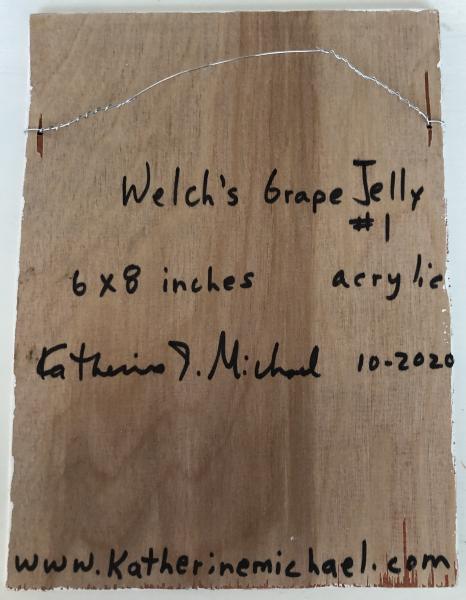 Welch's Grape Jelly
#1
6x8 inches acrylic
Katherine J. Michael 10-2020
www.Katherinemichael.com